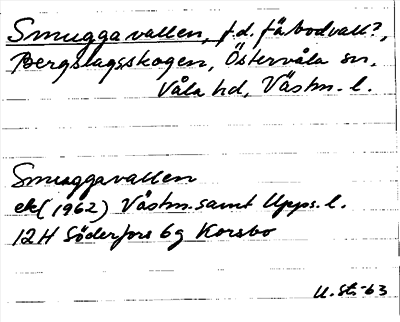 Smuggavallen, f.d. fäbodvall?,
Bergslagsskogen, Östervåla sn,
Våla hd, Västm. l.
Smuggavallen
ek (1962) Västm. samt Upps. l.
12H Söderfors 6g Korsbo
U. St. -63